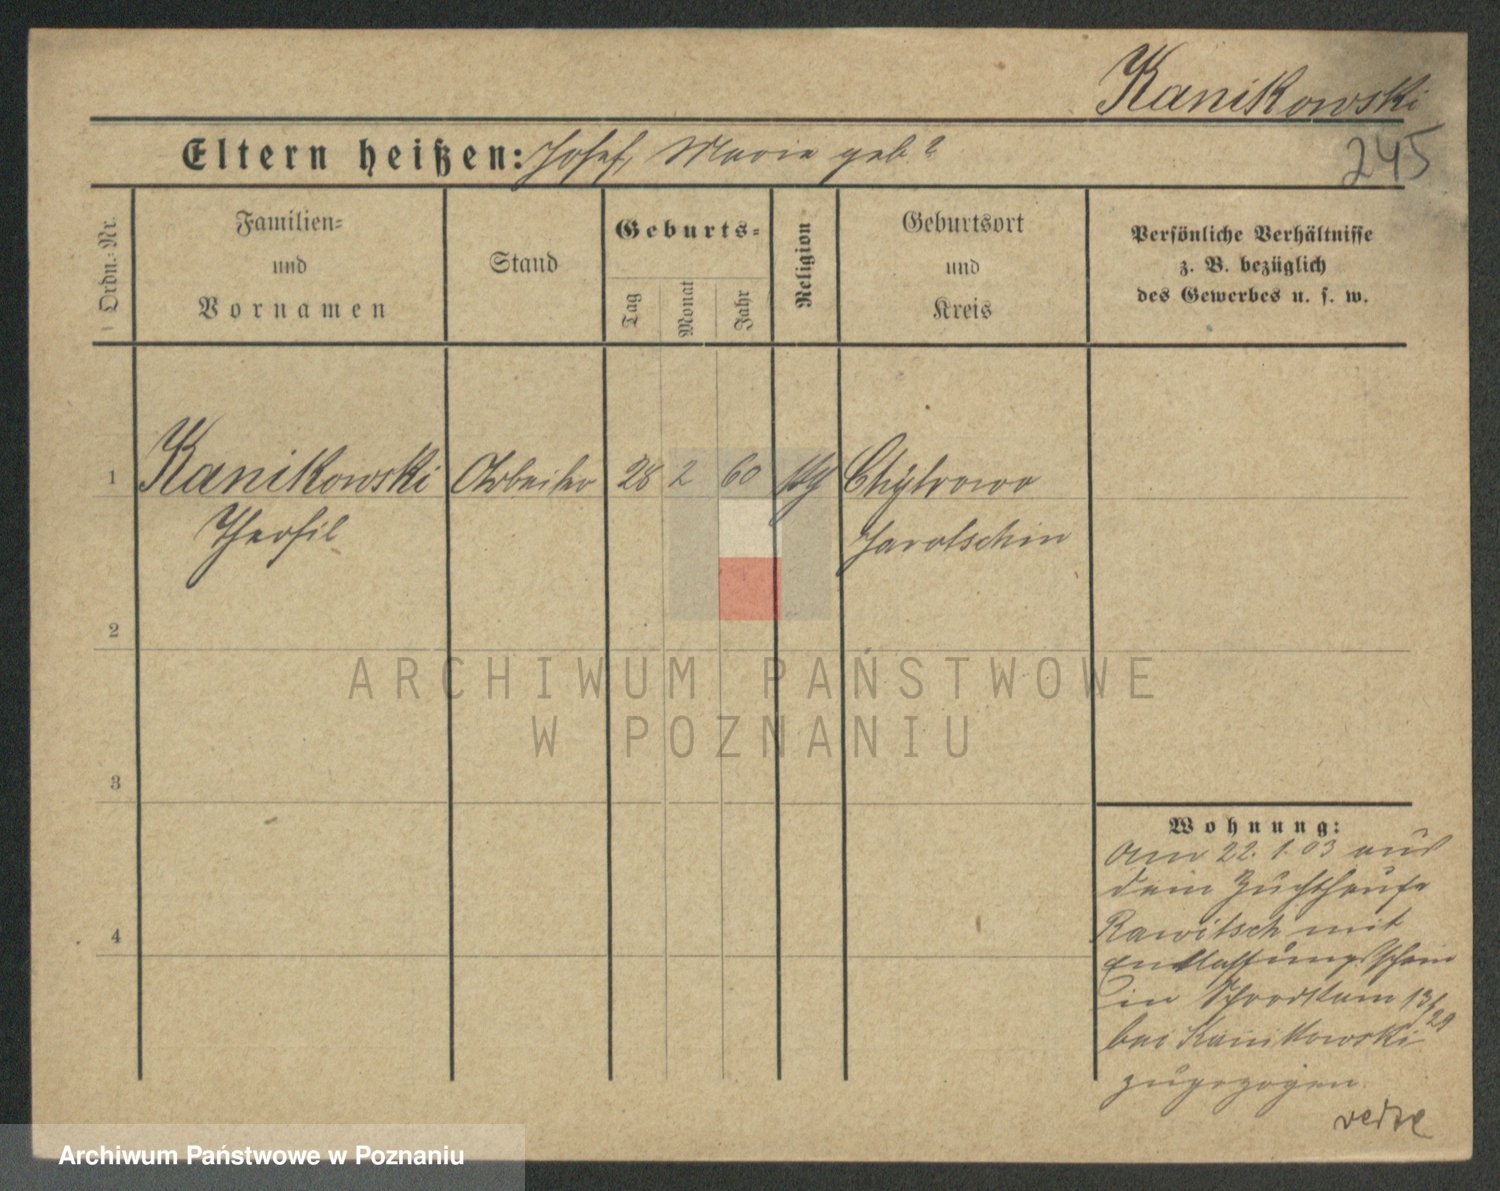 Kanikowski
245
Eltern heißen: Josef, Marie geb?
Ordn.-Nr.
Familien-
und
Vornamen
Stand
Geburts-
Tag
Monat
Jahr
Religion
Geburtsort
und
Kreis
Persönliche Verhältnisse
z. B. bezüglich
des Gewerbes u. s. w.
1 Kanikowski Arbeiter 28 2 60 Chytrowo
Theofil Jarotschin
2
3
4
Wohnung:
Am 22. 1. 03 aus
dem Zuchthause
Rawitsch mit
Entlassungsschein
in 13/29
bei Kanikowski
zugezogen.
verte
ARCHIWUM PAŃSTWOWE
W POZNANIU
Archiwum Państwowe w Poznaniu